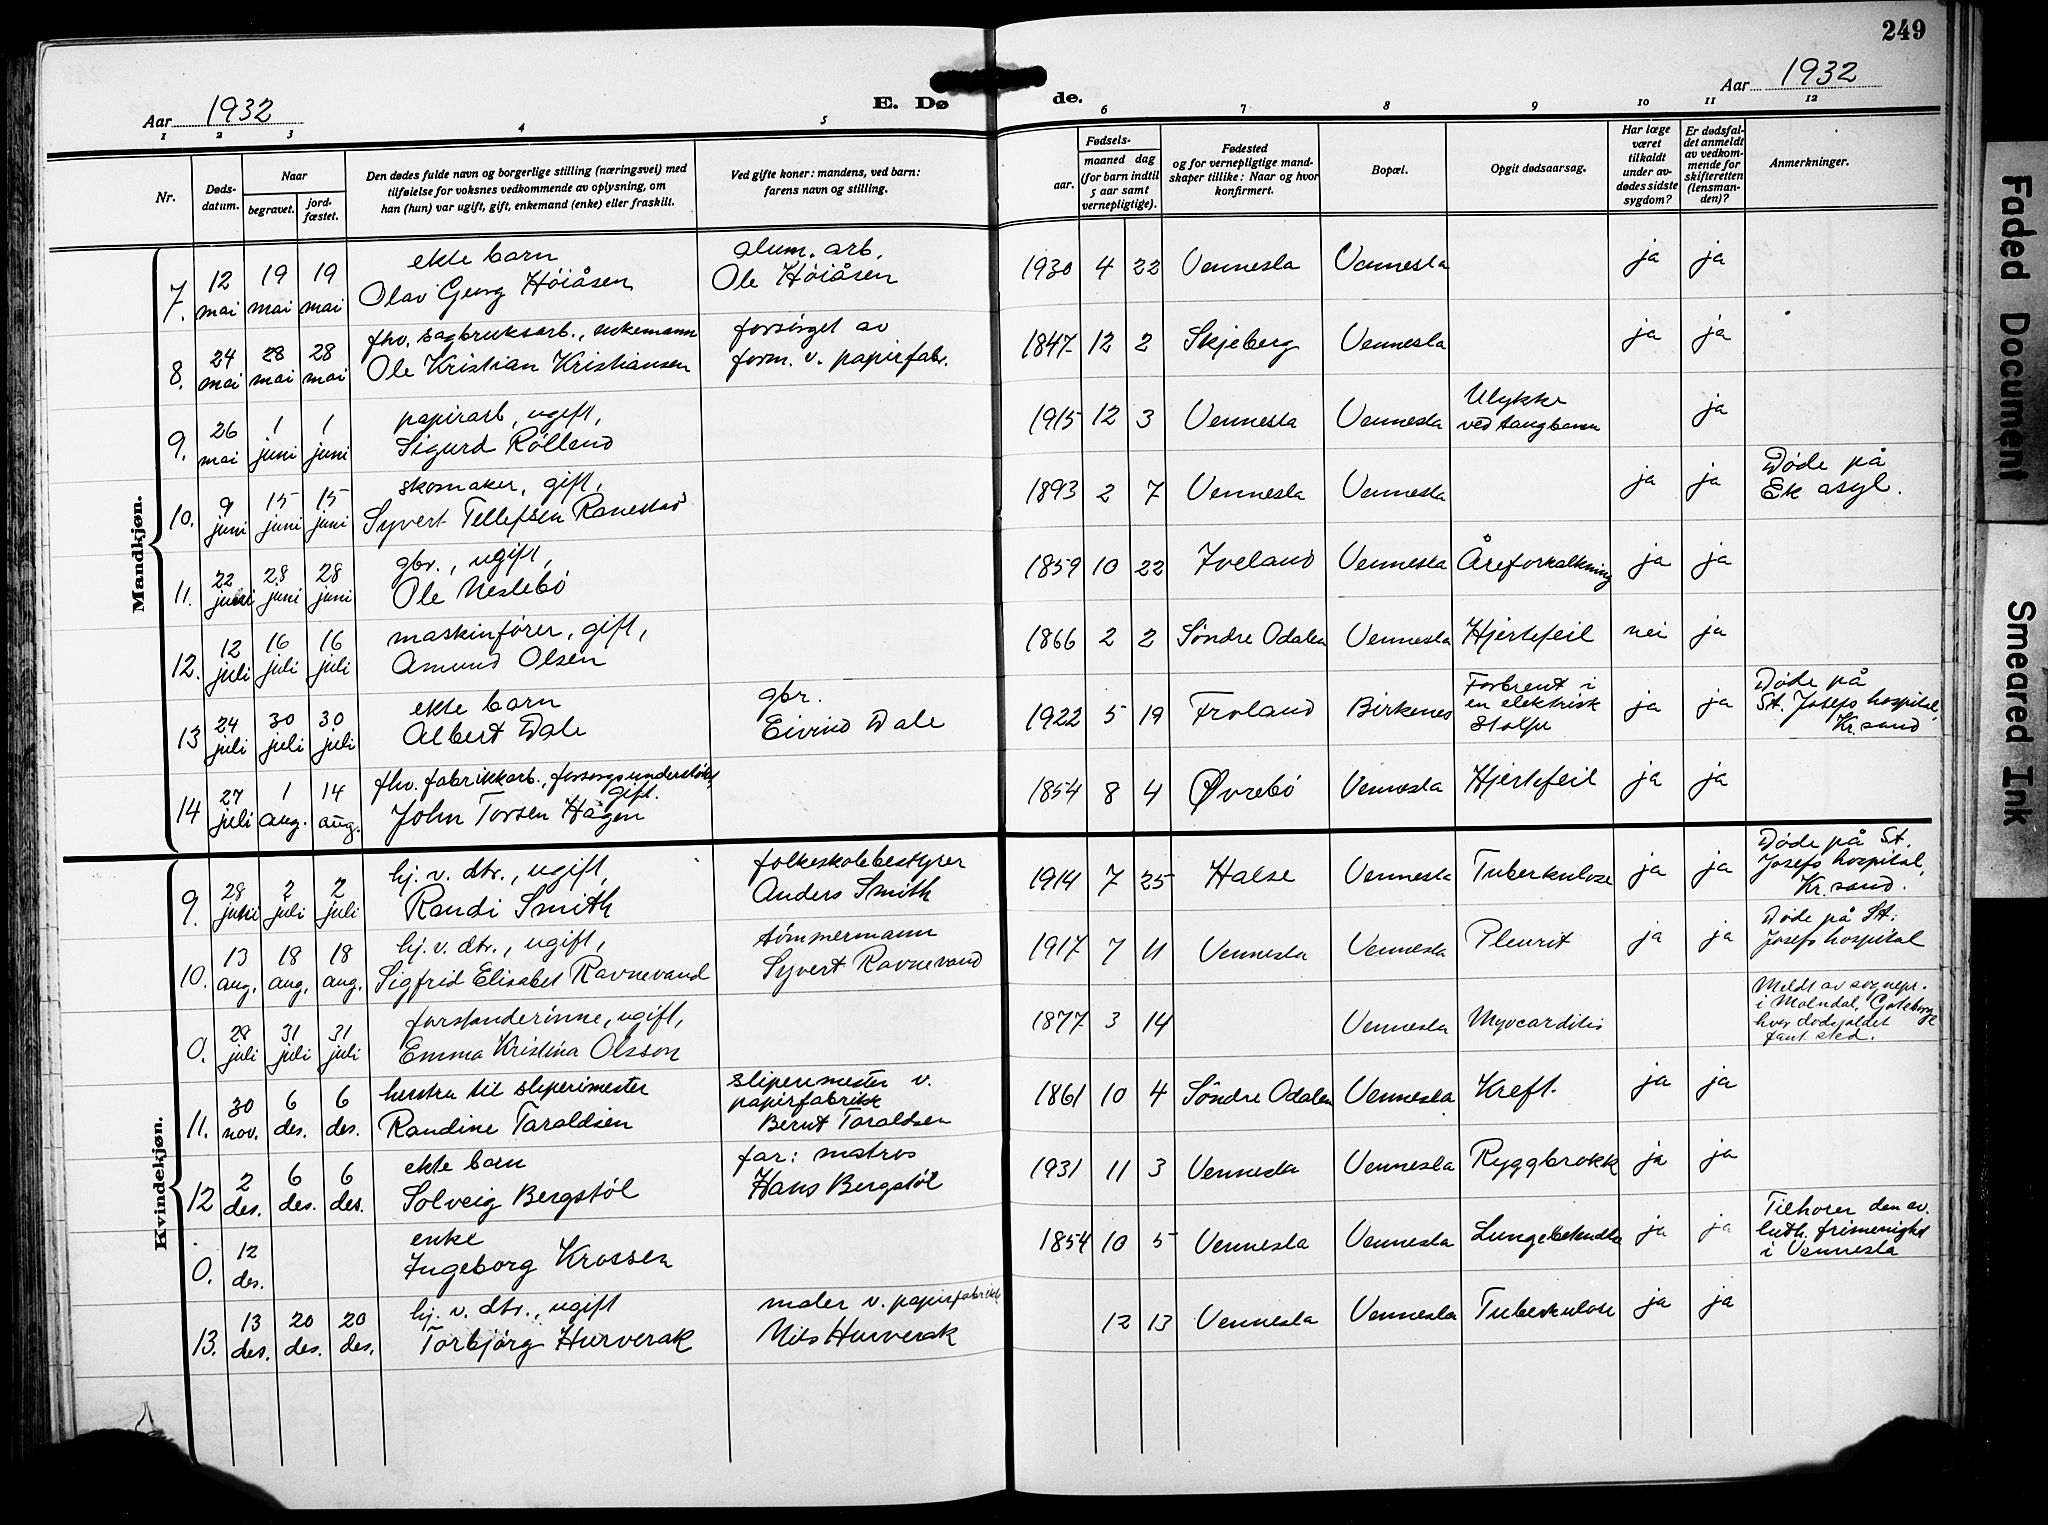 249
Aar 1932
E. Dø
de.
Aar 1932
1 2 3 4 5 6 7 8 9 10 11 12
Nr.
Døds-
datum.
Naar
begravet.
jord-
fæstet.
Den dødes fulde navn og borgerlige stilling (næringsvei) med
tilføielse for voksnes vedkommende av oplysning, om
han (hun) var ugift, gift, enkemand (enke) eller fraskilt.
Ved gifte koner: mandens, ved barn:
farens navn og stilling.
Fødsels-
aar.
maaned dag
(for barn indtil
5 aar samt
vernepligtige).
Fødested
og for vernepligtige mand-
skaper tillike: Naar og hvor
konfirmert.
Bopæl.
Opgit dødsaarsag.
Har læge
været
tilkaldt
under av-
dødes sidste
sygdom?
Er dødsfal-
det anmeldt
av vedkom-
mende for
skifteretten
(lensman-
den)?
Anmerkninger.
Mandkjøn.
7. 12 mai 19 mai 19 mai
ekte barn
Olav Georg Höiåsen
alum. arb.
Ole Höiåsen
1930 4 22 Vennesla Vennesla ja ja
8. 24 mai 28 mai 28 mai
fhv. sagbruksarb., enkemann
Ole Kristian Kristiansen
forsörget av
form. v. papirfabr.
1847 12 2 Skjeberg Vennesla ja ja
9. 26 mai 1 juni 1 juni
papirarb, ugift,
Sigurd Rölland
1915 12 3 Vennesla Vennesla
Ulykke
ved taugbanen
ja
10. 9 juni 15 juni 15 juni
skomaker, gift,
Syvert Tellefsen Ranestad
1893 2 7 Vennesla Vennesla ja ja
Döde på
Ek asyl.
11. 22 juni 28 juni 28 juni
gbr., ugift,
Ole Neslebö
1859 10 22 Iveland Vennesla Åreforkalkning ja ja
12. 12 juli 16 juli 16 juli
maskinförer, gift,
Amund Olsen
1866 2 2 Söndre Odalen Vennesla Hjertefeil nei ja
13 24 juli 30 juli 30 juli
ekte barn
Albert Dale
gbr.
Eivind Dale
1922 5 19 Froland Birkenes
Forbrent i
en elektrisk
stolpe
ja ja
Döde på
St. Josefs hospital,
Kr. sand
14 27 juli 1 aug. 14 aug.
fhv. fabrikkarb., forsorgsunderstöttet,
gift.
John Torsen Hagen
1854 8 4 Øvrebö Vennesla Hjertefeil ja ja
Kvindekjøn.
9. 28 juni 2 juli 2 juli
hj. v. dtr., ugift,
Randi Smith
folkeskolebestyrer
Anders Smith
1914 7 25 Halse Vennesla Tuberkulose ja ja
Döde på St.
Josefs hospital,
Kr. sand.
10. 13 aug. 18 aug. 18 aug.
hj. v. dtr., ugift,
Sigfrid Elisabet Ravnevand
tömmermann
Syvert Ravnevand
1917 7 11 Vennesla Vennesla Pleurit ja ja
Döde på St.
Josefs hospital
0. 29 juli 31 juli 31 juli
forstanderinne, ugift,
Emma Kristina Olsson
1877 3 14 Vennesla Myocarditis
Meldt av sognepr.
i Molndal, Göteborg
hvor dödsfaldet
fant sted.
11. 30 nov. 6 des. 6 des.
hustru til sliperimester
Randine Taraldsen
sliperimester v.
papirfabrikk
Bernt Taraldsen
1861 10 4 Söndre Odalen Vennesla Kreft. ja ja
12 2 des. 6 des. 6 des.
ekte barn
Solveig Bergstöl
far: matros
Hans Bergstöl
1931 11 3 Vennesla Vennesla Ryggbrokk ja ja
0. 12 des.
enke
Ingeborg Krossen
1854 10 5 Vennesla Vennesla Lungebetendelse ja ja
Tilhorer den ev.
luth. frimenighet
i Vennesla
13. 13 des. 20 des. 20 des.
hj. v. dtr., ugift
Torbjörg Hurverak
maler v. papirfabrikk
Nils Hurverak
12 13 Vennesla Vennesla Tuberkulose ja ja
Faded Document
Smeared Ink